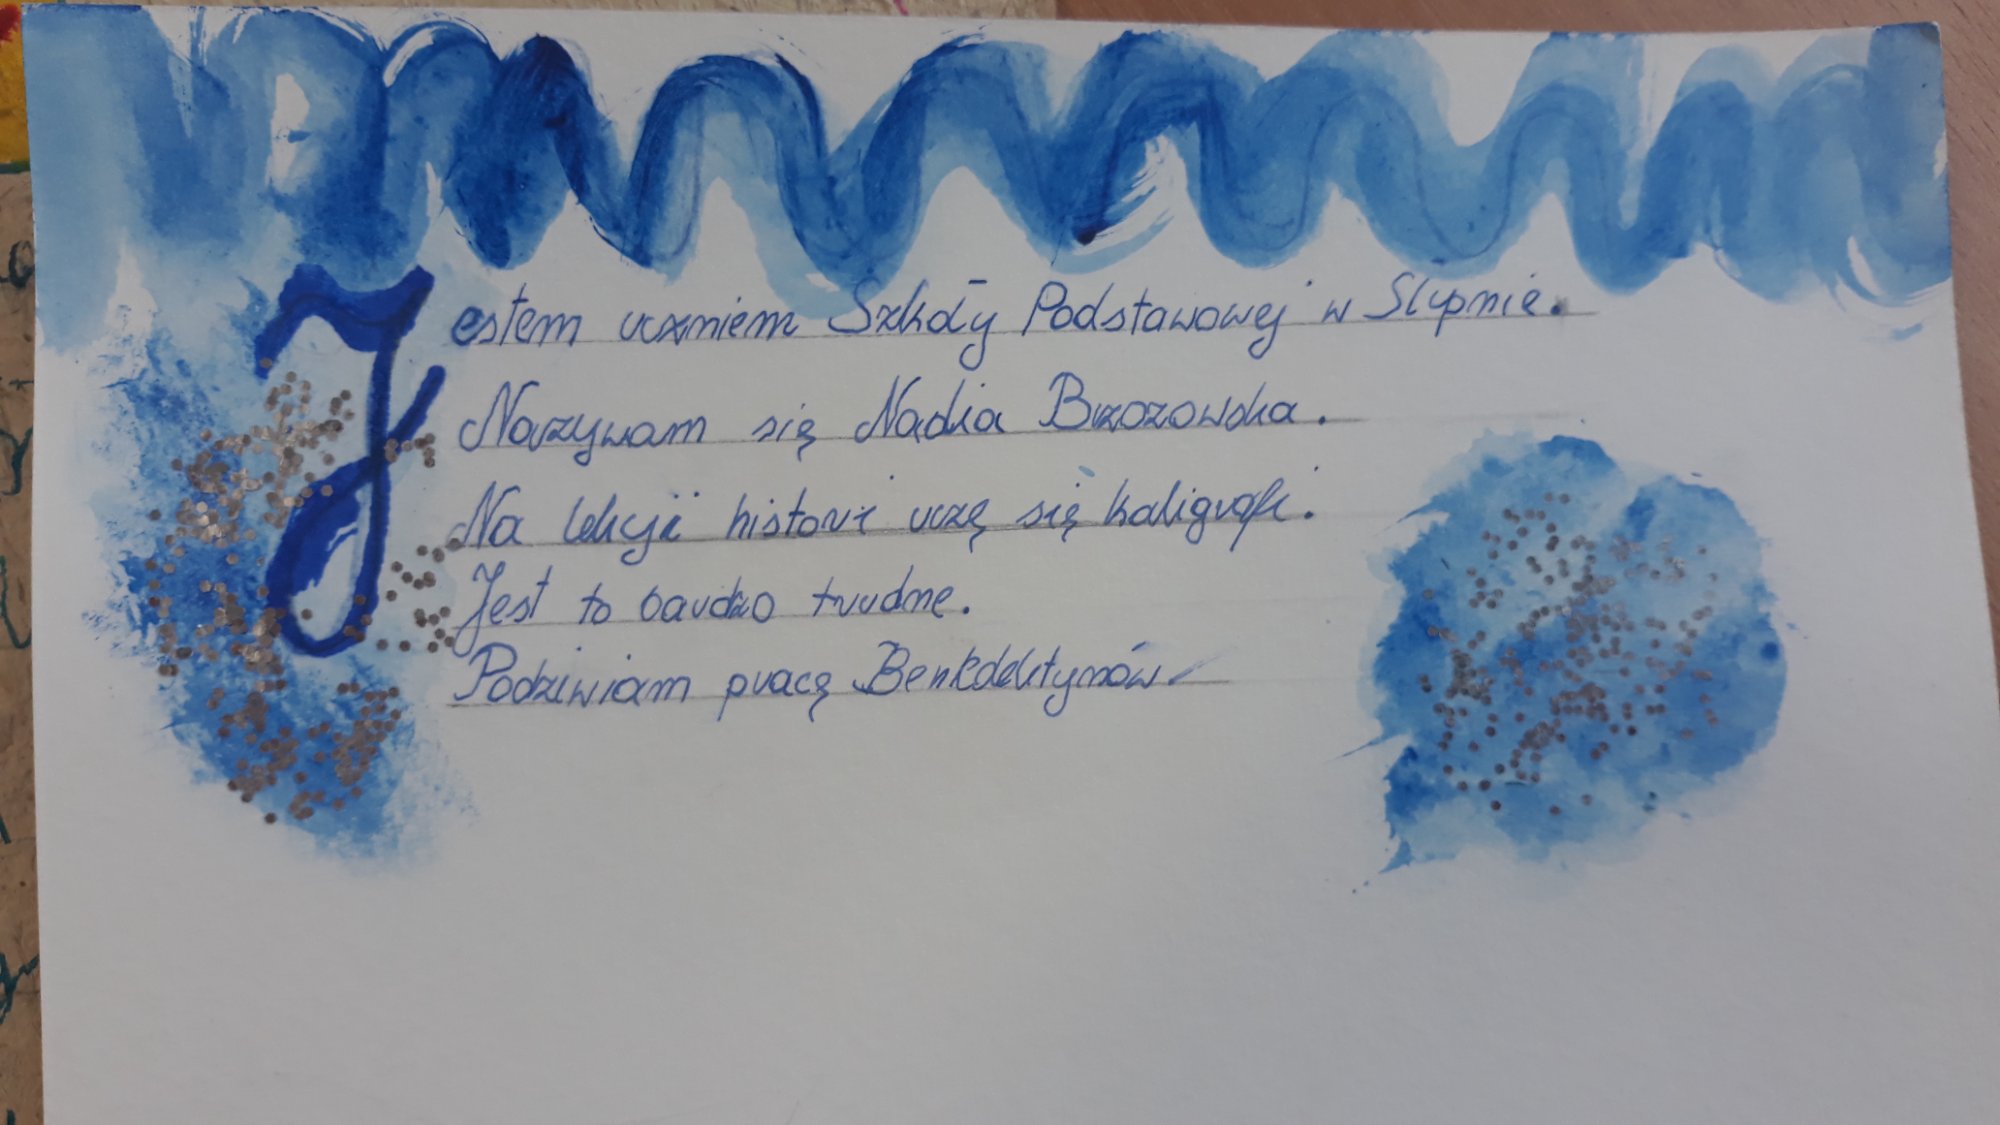 Jestem uczniem Szkoły Podstawowej w Słupnie.
Nazywam się Nadia Brzozowska.
Na lekcji histori uczę się kaligrafi.
Jest to bardzo trudne.
Podziwiam pracę Benedektynów